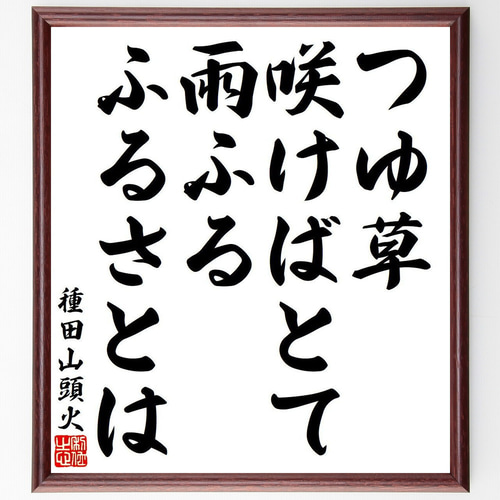 つゆ草
咲けばとて
雨ふる
ふるさとは
種田山頭火